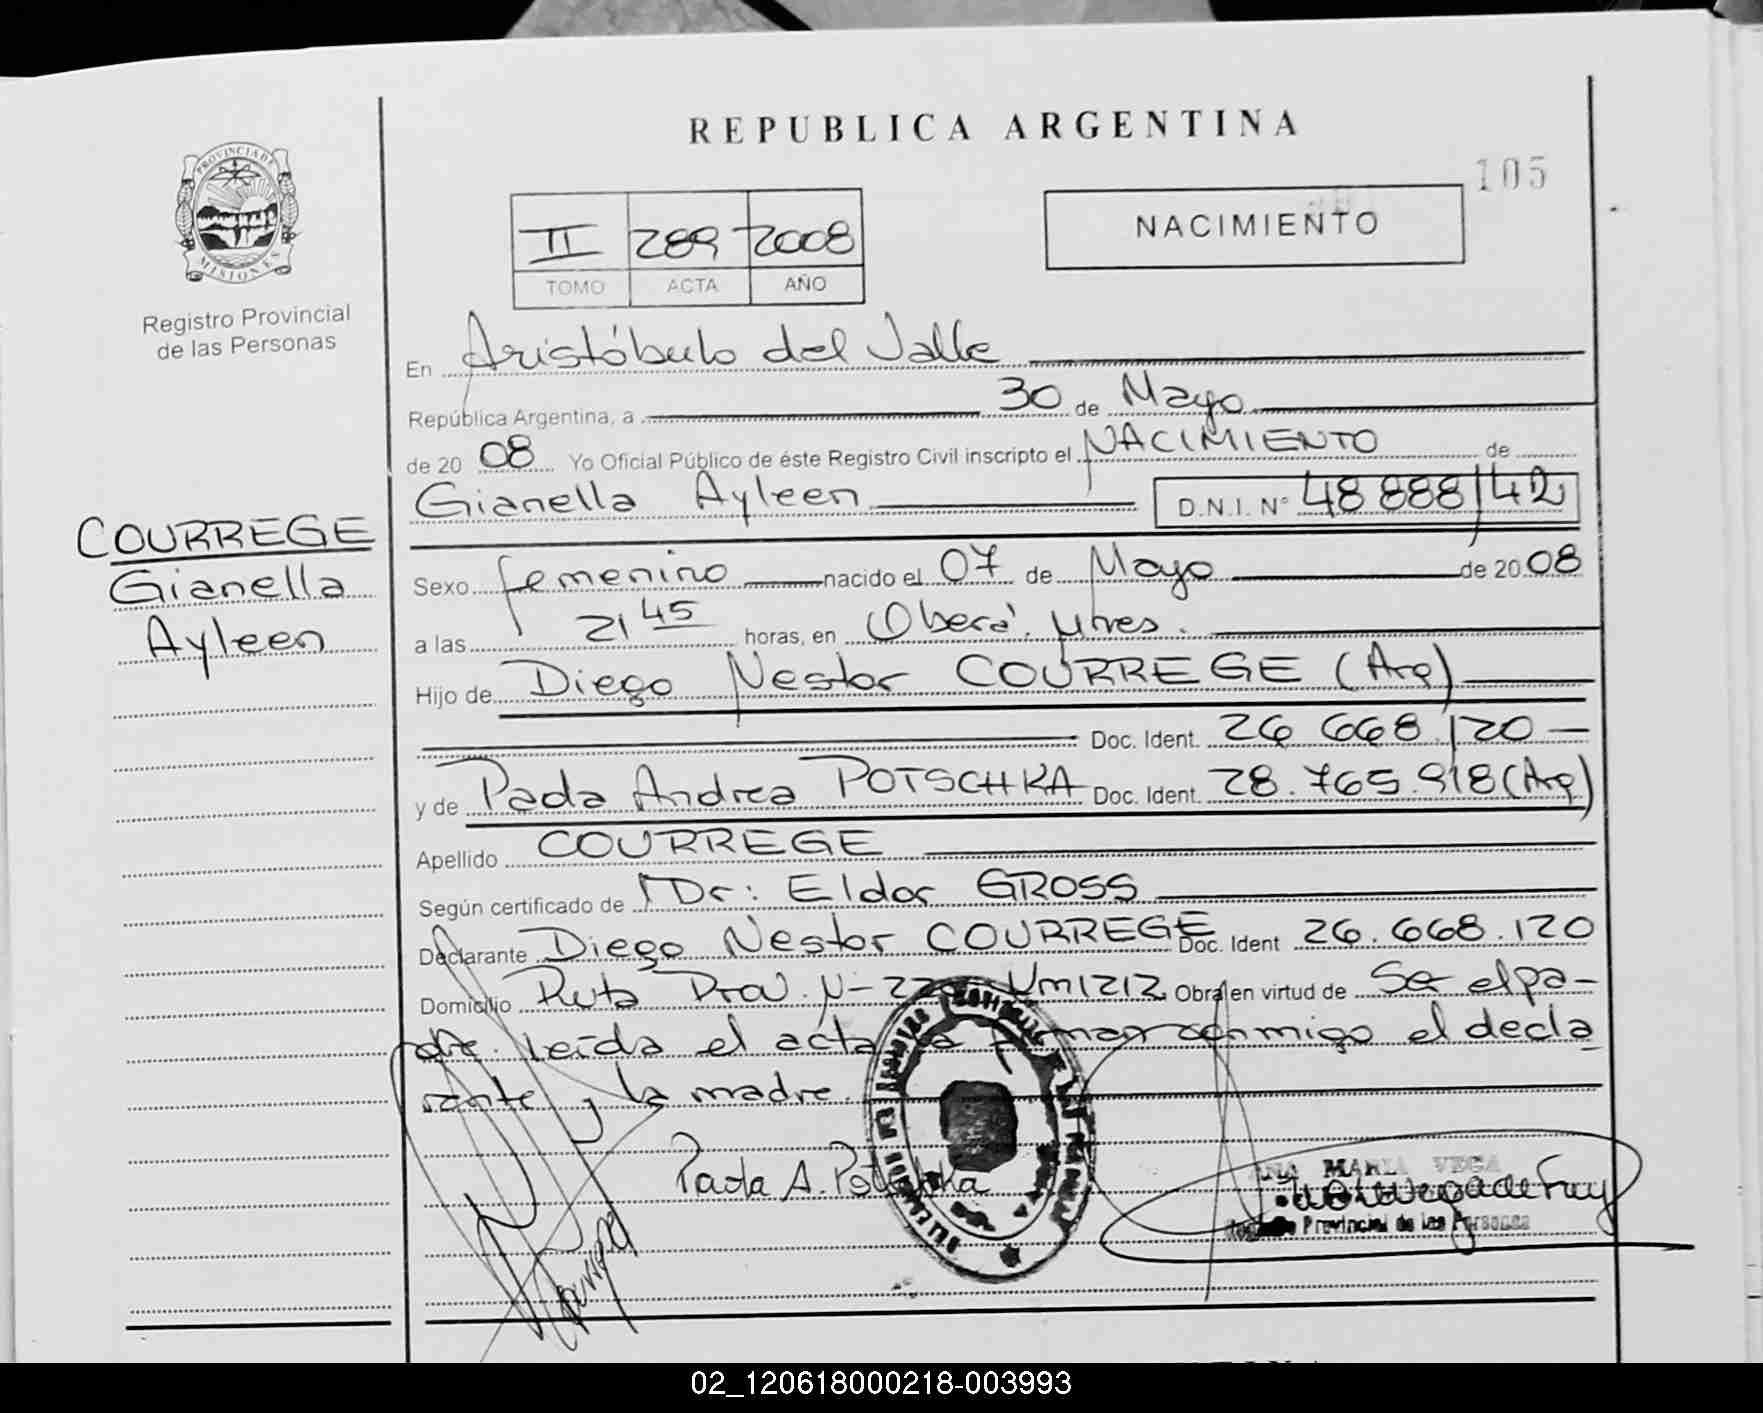 REPUBLICA ARGENTINA
105
PROVINCIA DE
MISIONES
Registro Provincial
de las Personas
II 289 2008
TOMO ACTA AÑO
NACIMIENTO
En Aristóbulo del Valle
República Argentina, a 30 de Mayo
de 20 08 Yo Oficial Público de éste Registro Civil inscripto el NACIMIENTO de
Gianella Ayleen D.N.I. N° 48 888 142
COURREGE
Gianella
Ayleen
Sexo femenino nacido el 07 de Mayo de 20 08
a las 21 45 horas, en Oberá, Mnes.
Hijo de Diego Nestor COURREGE (Arg)
Doc. Ident. 26 668 120
y de Paola Andrea POTSCHKA Doc. Ident. 28.765.918 (Arg)
Apellido COURREGE
Según certificado de Dr: Eldor GROSS
Declarante Diego Nestor COURREGE Doc. Ident 26.668.120
Domicilio Ruta Prov. Nº 220 Km 1212 Obra en virtud de Ser el pa-
dre. Leída el acta la firman conmigo el decla
rante y la madre.
Paola A. Potschka
ANA MARIA VEGA
Provincial de las Personas
02_120618000218-003993